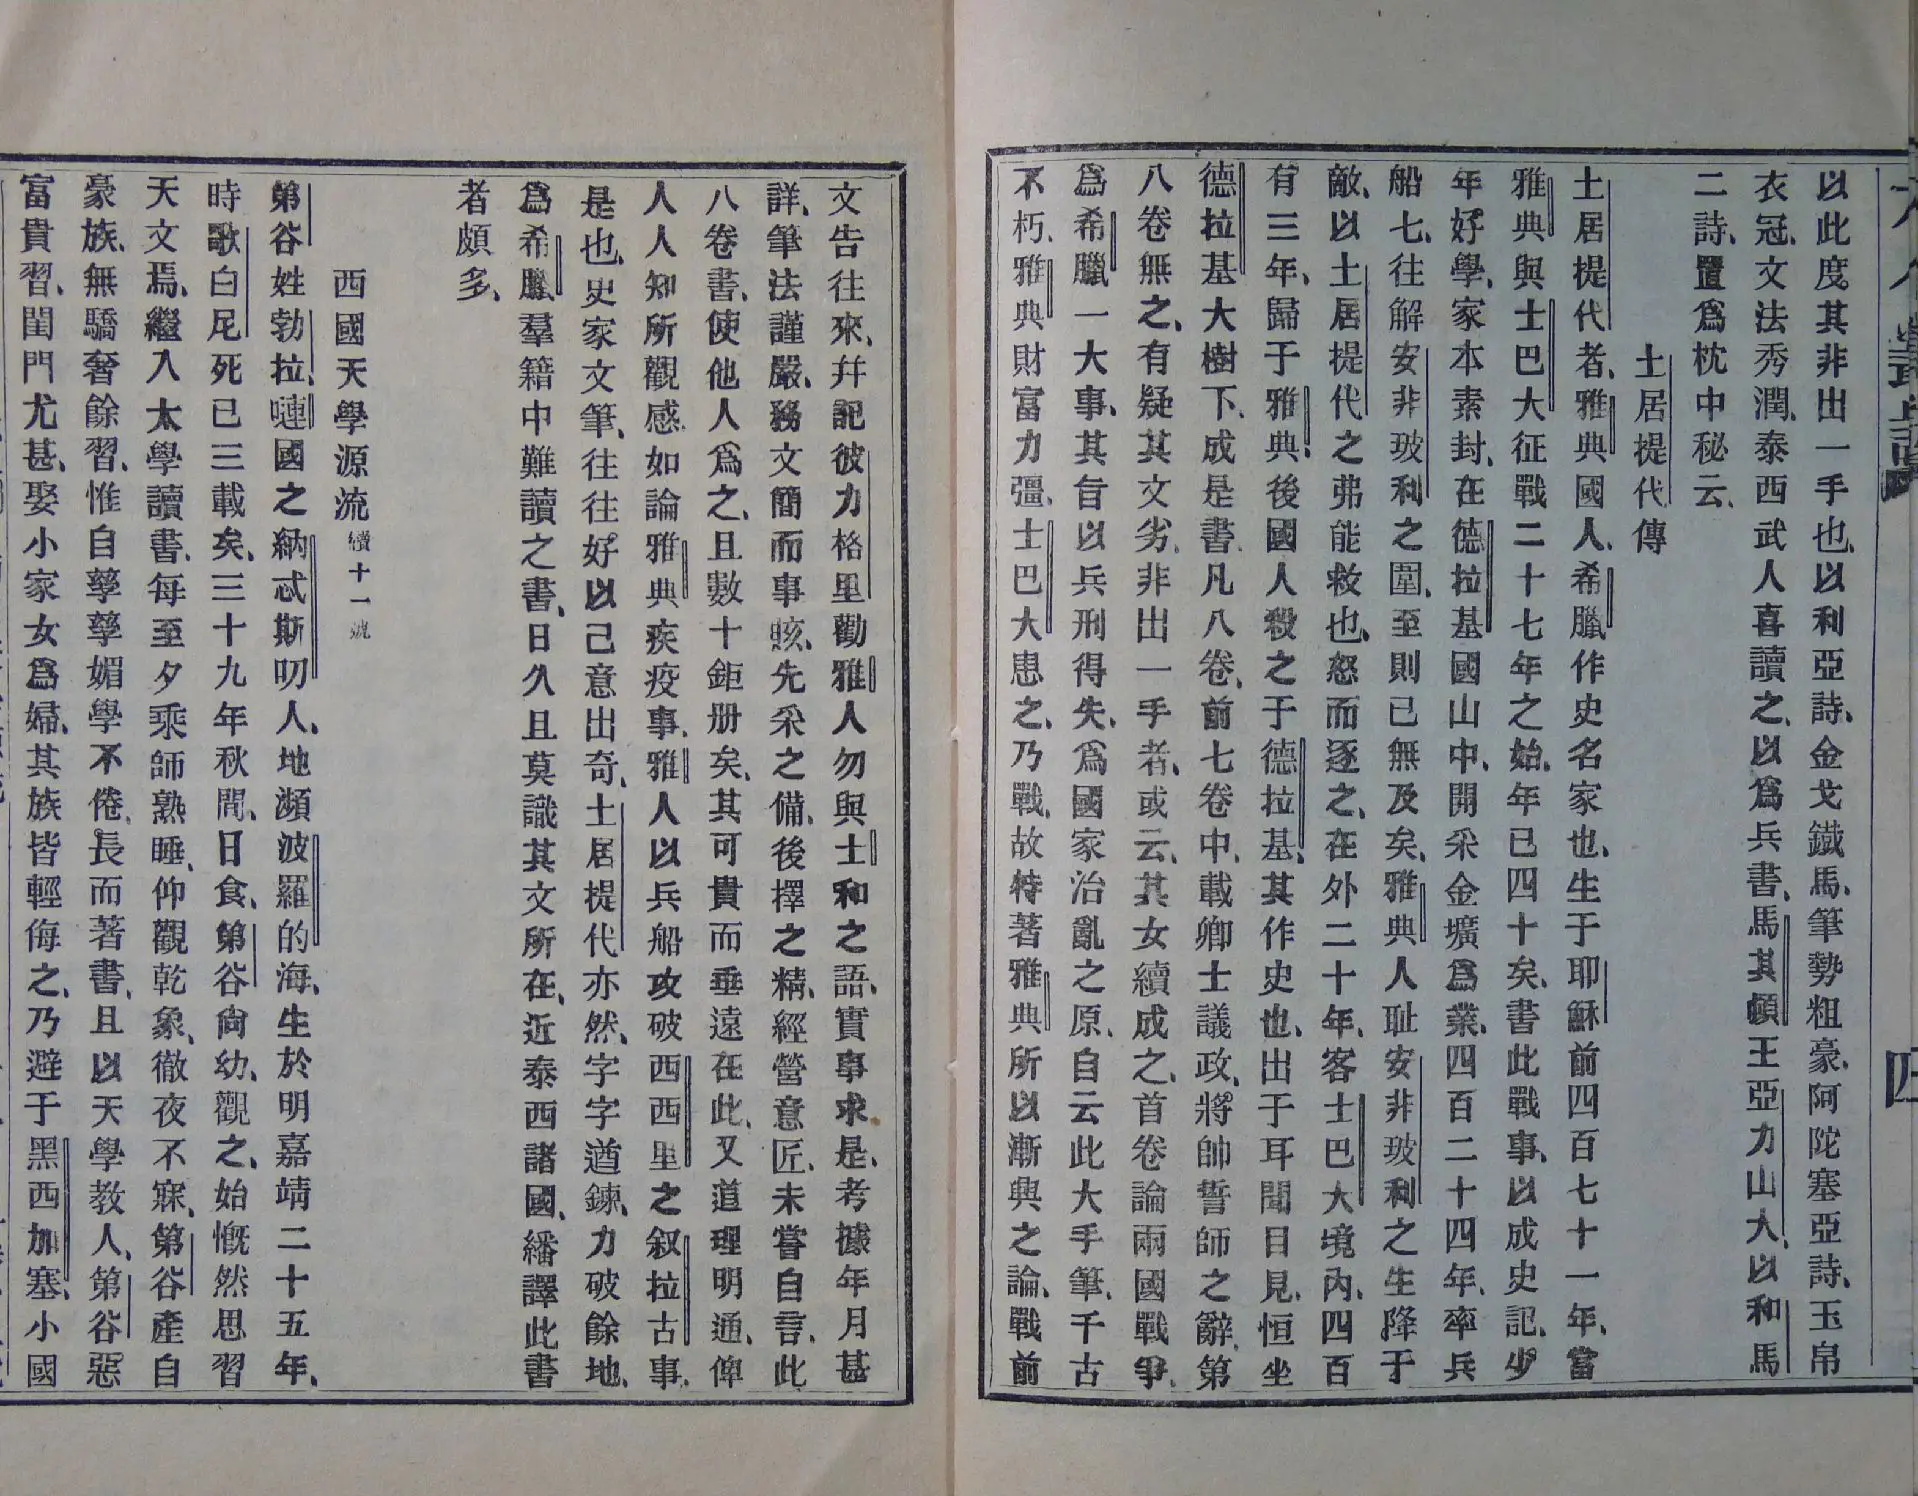 以此度其非出一手也、以利亞詩、金戈鐵馬、筆勢粗豪、阿陀塞亞詩、玉帛
衣冠、文法秀潤、泰西武人喜讀之、以爲兵書、馬其頓王亞力山大、以和馬
二詩、置爲枕中秘云、
土居提代傳
土居提代者、雅典國人、希臘作史名家也、生于耶穌前四百七十一年、當
雅典與士巴大征戰二十七年之始、年已四十矣、書此戰事、以成史記、少
年好學、家本素封、在德拉基國山中、開采金壙爲業、四百二十四年、率兵
船七、往解安非玻利之圍、至則已無及矣、雅典人耻安非玻利之生降于
敵、以土居提代之弗能救也、怒而逐之、在外二十年、客士巴大境內、四百
有三年、歸于雅典、後國人殺之于德拉基、其作史也、出于耳聞目見、恒坐
德拉基大樹下、成是書、凡八卷、前七卷中、載卿士議政、將帥誓師之辭、第
八卷無之、有疑其文劣、非出一手者、或云、其女續成之、首卷論兩國戰爭、
爲希臘一大事、其旨以兵刑得失、爲國家治亂之原、自云此大手筆、千古
不朽、雅典財富力彊、士巴大患之、乃戰、故特著雅典所以漸興之論、戰前
文告往來、幷記彼力格里勸雅人勿與士和之語、實事求是、考據年月甚
詳、筆法謹嚴、務文簡而事賅、先采之備、後擇之精、經營意匠、未嘗自言、此
八卷書、使他人爲之、且數十鉅册矣、其可貴而垂遠在此、又道理明通、俾
人人知所觀感、如論雅典疾疫事、雅人以兵船攻破西西里之叙拉古事、
是也、史家文筆、往往好以己意出奇、土居提代亦然、字字遒鍊、力破餘地、
爲希臘羣籍中難讀之書、日久且莫識其文所在、近泰西諸國、繙譯此書
者頗多、
西國天學源流續十一號
第谷姓勃拉、嗹國之納忒斯叨人、地瀕波羅的海、生於明嘉靖二十五年、
時歌白尼死已三載矣、三十九年秋間、日食、第谷尙幼、觀之、始慨然思習
天文焉、繼入太學讀書、每至夕乘師熟睡、仰觀乾象、徹夜不寐、第谷產自
豪族、無驕奢餘習、惟自孳孳媚學不倦、長而著書、且以天學教人、第谷惡
富貴習、閨門尤甚、娶小家女爲婦、其族皆輕侮之、乃避于黑西加塞、小國